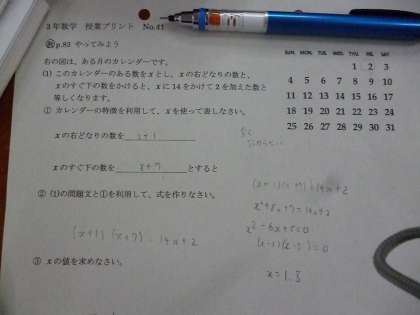 3年数学 授業プリント No.41
教 p.83 やってみよう
右の図は、ある月のカレンダーです。
(1) このカレンダーのある数をxとし、xの右どなりの数と、
xのすぐ下の数をかけると、xに14をかけて2を加えた数と
等しくなります。
① カレンダーの特徴を利用して、xを使って表しなさい。
xの右どなりの数を x+1
xのすぐ下の数を x+7 とすると
② (1)の問題文と①を利用して、式を作りなさい。
(x+1)(x+7)=14x+2
③ xの値を求めなさい。
SUN. MON. TUE. WED. THU. FRI. SAT.
1 2 3
4 5 6 7 8 9 10
11 12 13 14 15 16 17
18 19 20 21 22 23 24
25 26 27 28 29 30 31
(x+1)(x+7)=14x+2
x²+8x+7=14x+2
x²-6x+5=0
(x-1)(x-5)=0
x=1.5